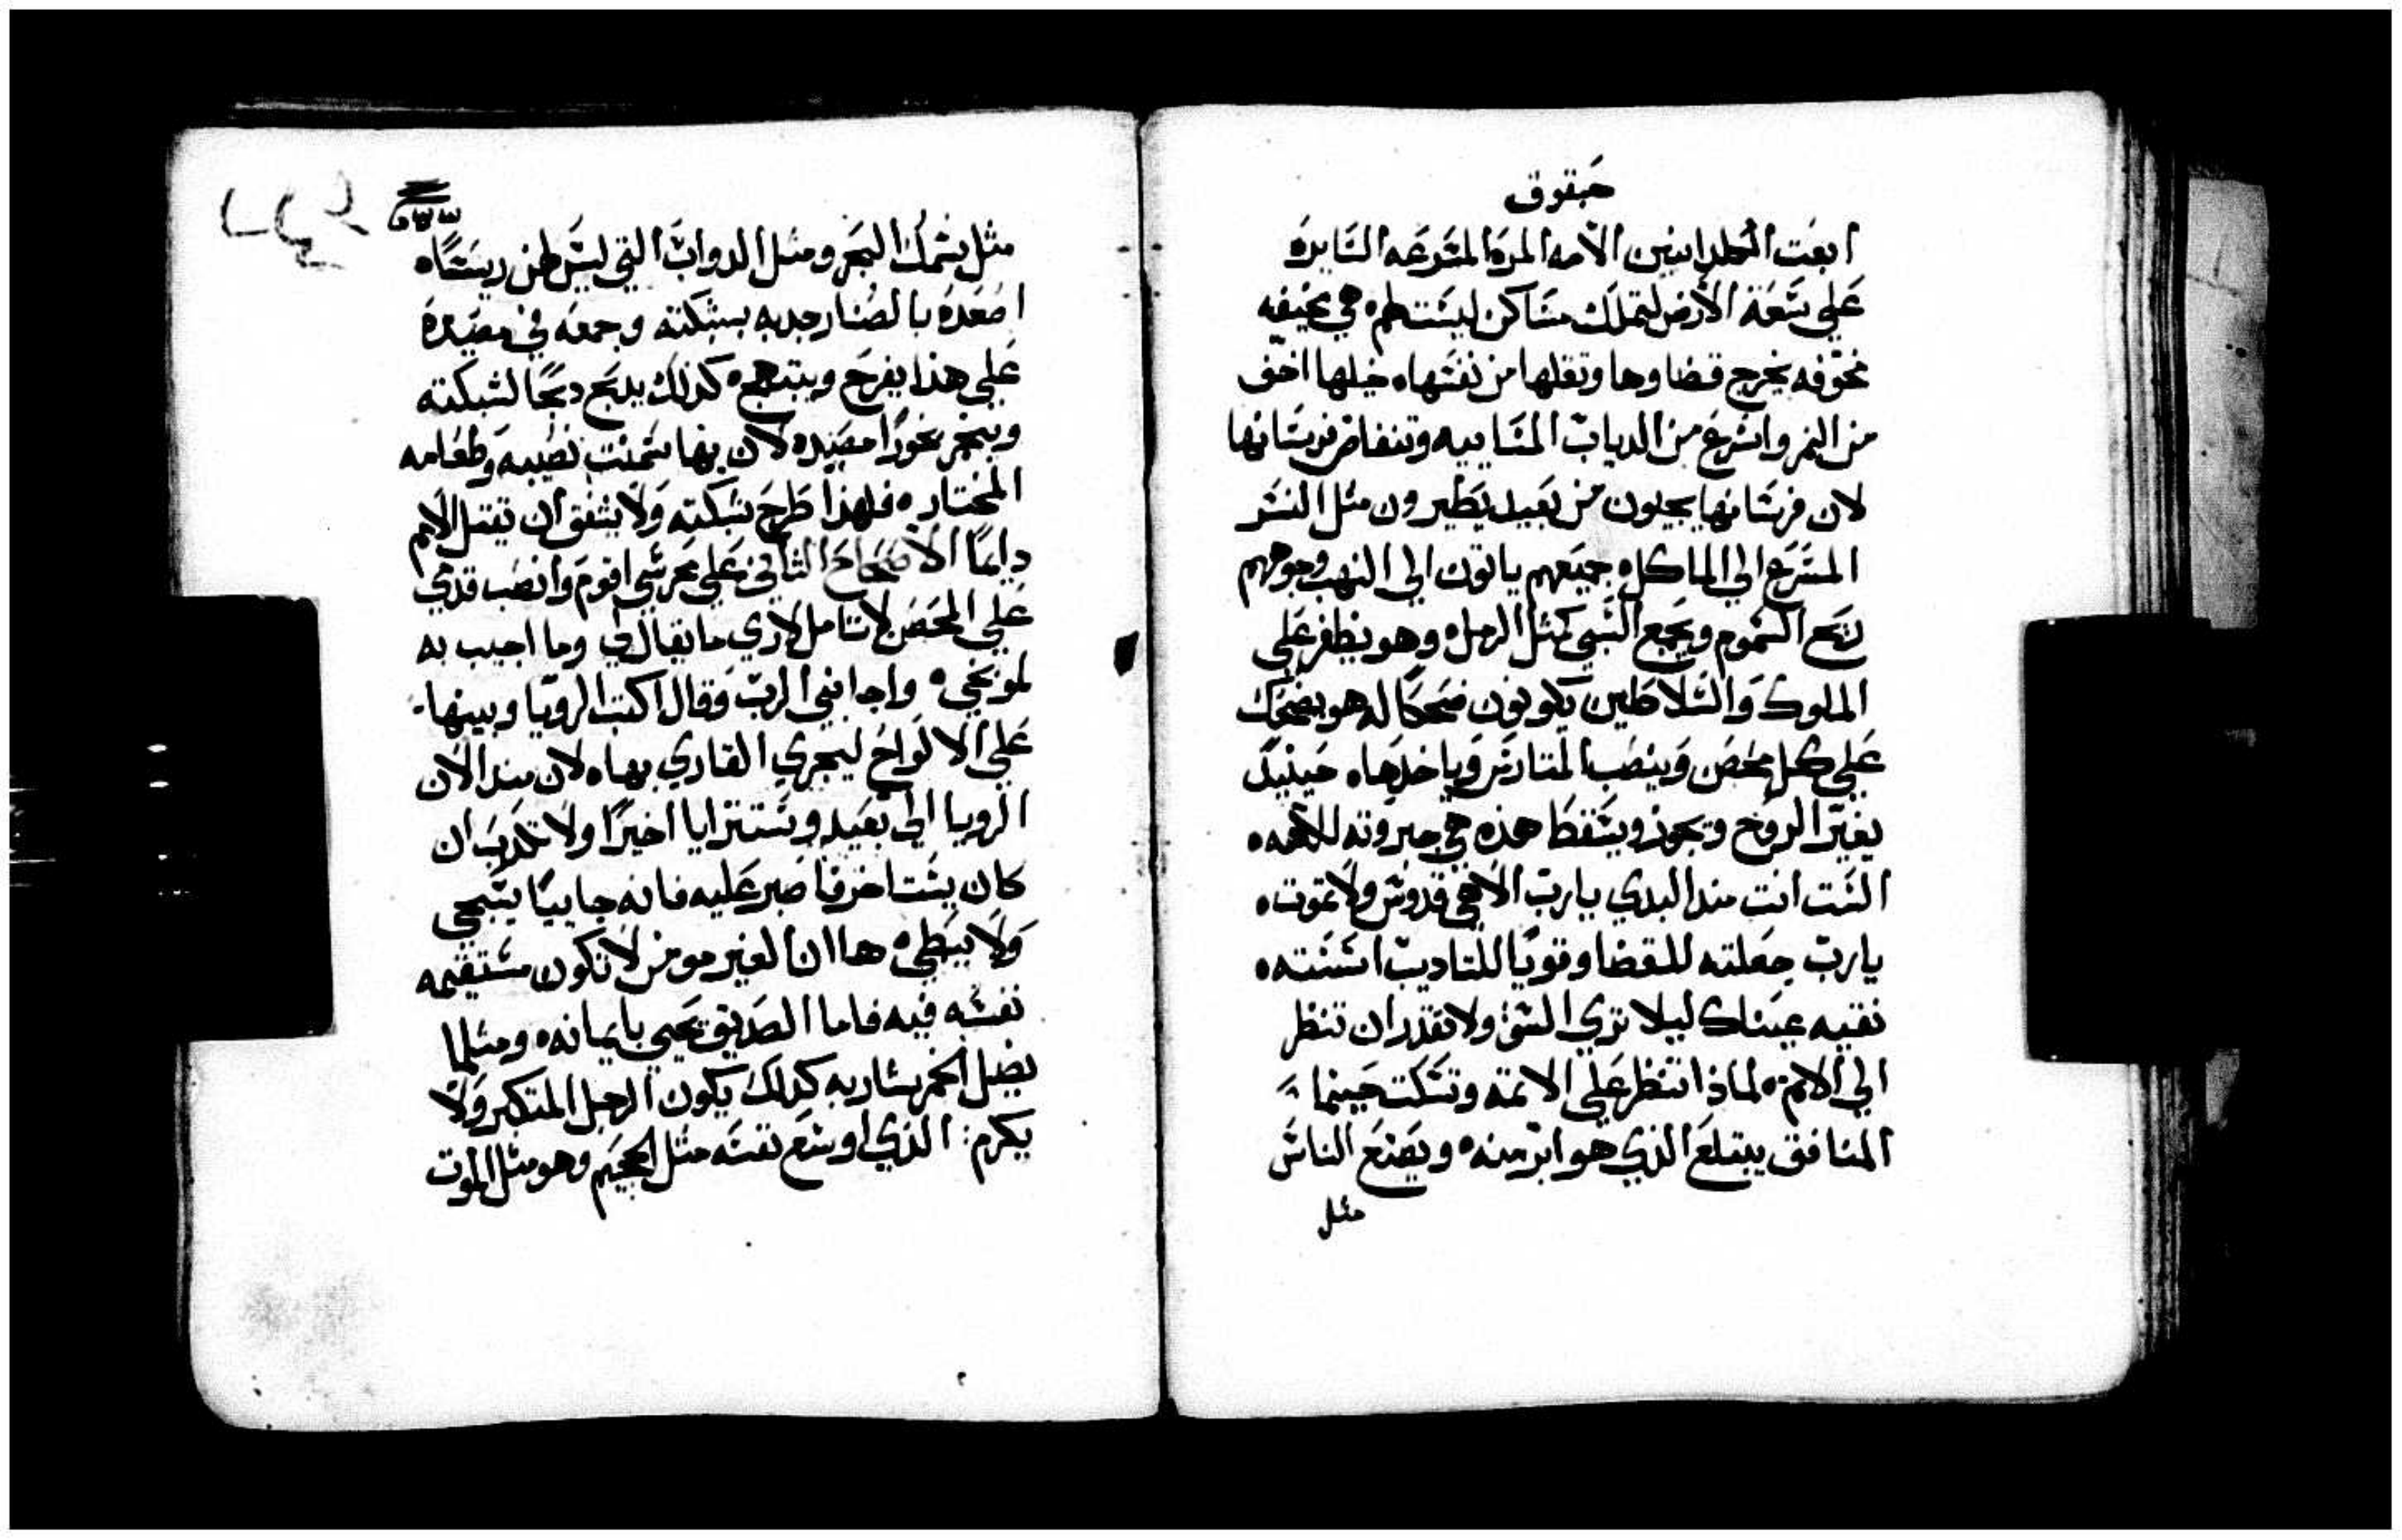 حبقوق
ابعت الكلدانيين الامه المره المسرعه السايره
علي سعة الارض لتملك مساكن ليست لهم هي مخيفه
مخوفه يخرج قضاوها وتقلها من نفسها خيلها اخف
من النمر واسرع من الدياب المسابيه وتنفاض فرسانها
لان فرسانها يجيون من بعيد يطيرون مثل النسر
المسرع الي الماكل جميعهم ياتون الي النهب وجوههم
ريح السموم ويجمع السبي كمثل الرمل وهو يظفر علي
الملوك والسلاطين يكونون ضحكا له هو يضحك
علي كل محصن وينصب المتارس وياخدها حينيد
يغير الروح ويجوز ويسقط هده هي جبروته للاهه
الست انت مند البدي يارب الاهي قدوسي ولا نموت
يارب جعلته للقضا وقويا للتاديب اسسته
نقيه عيناك ليلا تري السو ولا تقدر ان تنظر
الي الاثم لماذا تنظر علي الاتمه وتسكت حينما
المنافق يبتلع الذي هو ابر منه وتصنع الناس
مثل
مثل سمك البحر ومثل الدواب التي ليس لهن ريسا
اصعده بالصنار جدبه بسبكته وجمعه في مصيدة
علي هذا يفرح ويبتهج كدلك يدبح دبحا لشبكته
ويبخر بخورا لمصيده لان بها سمنت نصيبه وطعامه
المختار فلهذا طرح شبكته ولا يشفق ان تقتل الامم
دايما الاصحاح الثاني علي محرسي اقوم وانصب قدمي
علي المحصن لاتامل لاري ما يقال لي وما اجيب به
لموبخي واجابني الرب وقال اكتب الرويا وبينها
علي الالواح ليجري القاري بها لان مند الان
الرويا الي بعيد وستترايا اخيرا ولا تكدب ان
كان يستاخر فاصبر عليه فانه جاييا يجي
ولا يبطي ها ان الغير مومن لا تكون مستقيمه
نفسه فيه فاما الصديق يحيي بايمانه ومثلما
يضل الخمر شاربه كدلك يكون الرجل المتكبر ولا
يكرم الذي اوسع نفسه مثل الجحيم وهو مثل الموت